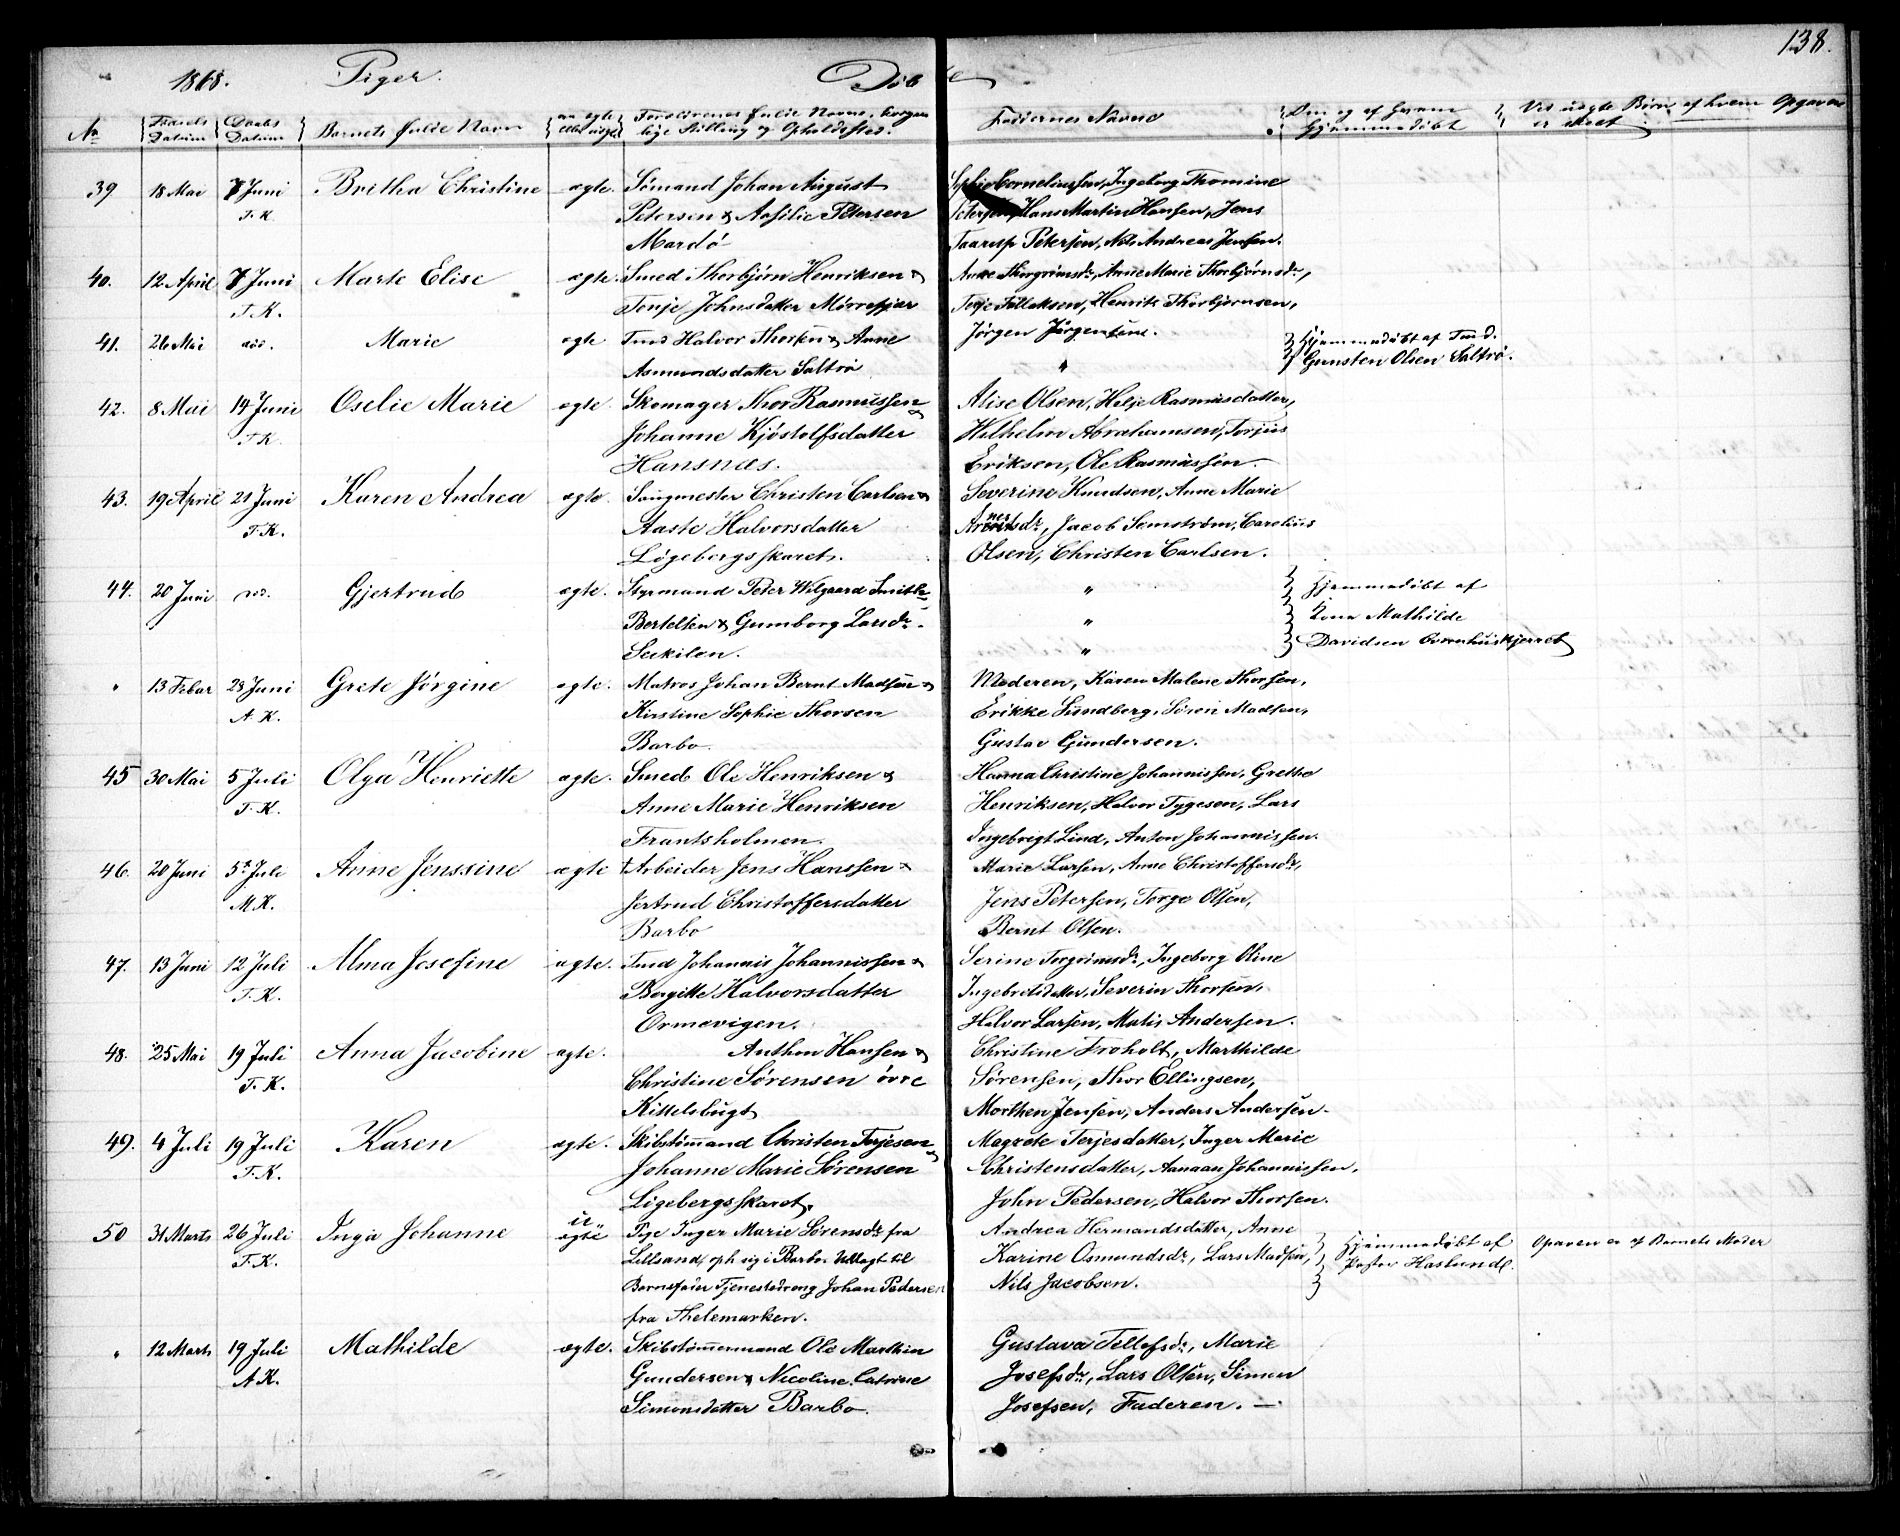 138.
1868. Piger. Döbte
No Fødsels Datum Daabs Datum Barnets fulde Navn om ægte eller uægte Forældrenes fulde Navne, borgerlige Stilling og Opholdssted. Faddernes Navne Om og af hvem Hjemmedøbt Vis uægte Børn af hvem Opgaven er skeet
39 18 Mai 7 Juni Britha Christine ægte. Sømand Johan August Corneliussen, Ingeborg Thomine
T. K. Petersen & Petersen Petersen, Hans Martin Hansen, Jens
Mardö Taarup Petersen, Nils Andreas Jensen.
40. 12 April 7 Juni Marte Elise ægte. Smed Thorbjörn Henriksen & Anne Thorgrimsdr, Anne Marie Thorbjörnsdr,
T. K. Tonje Johnsdatter Mörrefjær Terje Tellefsen, Henrik Thorbjørnsen,
Jørgen Jørgensen.
41. 26 Mai Marie ægte Tmd Halvor Thorsen & Anne " Hjemmedøbt af Tmd.
Asmundsdatter Saltrö Gunsten Olsen Saltrö.
42. 8 Mai 14 Juni Oselie Marie ægte. Skomager Thor Rasmussen & Alise Olsen, Helje Rasmusdatter,
T. K. Johanne Kjöstolfsdatter Wilhelm Abrahamsen, Torjus
Hansnæs. Eriksen, Ole Rasmussen.
43. 19 April 21 Juni Karen Andrea ægte Saugmester Christen Carlsen & Severine Knudsen, Anne Marie
T. K. Aaste Halvorsdatter Jacob Semström, Carolius
Lögebergsskaret. Olsen, Christen Carlsen.
44. 20 Juni Gjertrud ægte. Styrmand Peter Wilgaard Smith " Hjemmedøbt af
Bertelsen & Gunnborg Larsdr. " Kona Mathilde
Songekilen. " Davidsen
" 13 Febar 28 Juni Grete Jörgine ægte. Matros Johan Bernt Madsen & Moderen, Karen Malene Thorsen,
A. K. Kirstine Sophie Thorsen Erikke Sundberg, Søren Madsen,
Barbo. Gustav Gundersen.
45 30 Mai 5 Juli Olga Henriette ægte. Smed Ole Henriksen & Hanna Christine Johannissen, Grethe
T. K. Anne Marie Henriksen Henriksen, Halvor Tygesen, Lars
Frantsholmen. Ingebrigt Lind, Anton Johannissen.
46. 20 Juni 5t Juli Anne Jenssine ægte Arbeider Jens Hanssen & Marie Larsen, Anne Christoffersdr,
M. K. Jertrud Christoffersdatter Jens Petersen, Torge Olsen,
Barbo Bernt Olsen.
47. 13 Juni 12 Juli Alma Josefine ægte. Tmd Johannis Johannissen & Serine Torgrimsdr, Ingeborg Oline
T. K. Bergitte Halvorsdatter Ingebretsdatter, Severin Thorsen,
Ormevigen. Halvor Larsen, Matis Andersen.
48. 25 Mai 19 Juli Anna Jacobine ægte. Anthon Hansen & Christine Froholt, Marthilde
T. K. Christine Sörensen övre Sörensen, Thor Ellingsen,
Kittelsbugt Morthen Jensen, Anders Andersen.
49. 4 Juli 19 Juli Karen ægte. Skibstömmand Christen Terjesen & Magrete Terjesdatter, Inger Marie
T. K. Johanne Marie Sörensen Christensdatter, Aanaan Johannissen,
Ligebergsskaret. John Pedersen, Halvor Thorsen.
50 31 Marts 26 Juli Inga Johanne uægte Pige Inger Marie Sörensdr fra Andrea Hermandsdatter, Anne Hjemmedøbt af Opaven er af Barnets Moder
T. K. Lillsand, oph sig i Barbo. Udlagt til Karine Osmundsdr, Lars Madsen, Pastor Haslund.
Barnefader Tjenestedreng Johan Pedersen Nils Jacobsen.
fra Thelemarken.
" 12 Marts 19 Juli Mathilde ægte. Skibstömmermand Ole Marthin Gustava Tellefsdr, Marie
A. K. Gundersen & Nicoline Catrine Josefsdr, Lars Olsen, Simon
Simonsdatter Barbo. Josefsen, Faderen. —